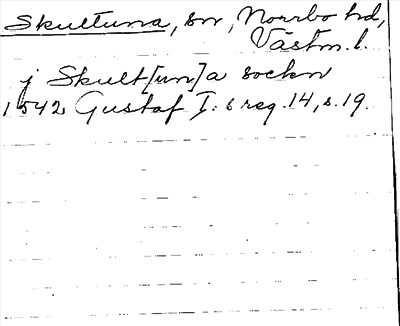 Skultuna, sn, Norrbo hd,
Västm. l.
j Skult[un]a sockn
1542 Gustaf I:s reg. 14, s. 19.